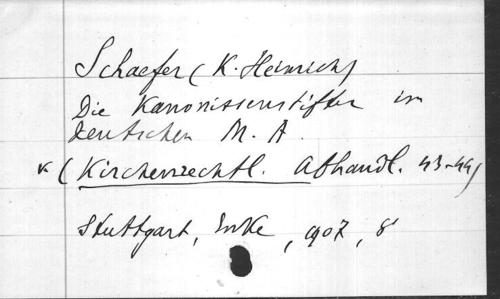 Schaefer (K. Heinrich)
Die Kanonissenstifter im
deutschen M. A.
(Kirchenrechtl. Abhandl. 43-44)
Stuttgart, Enke, 1907, 8°